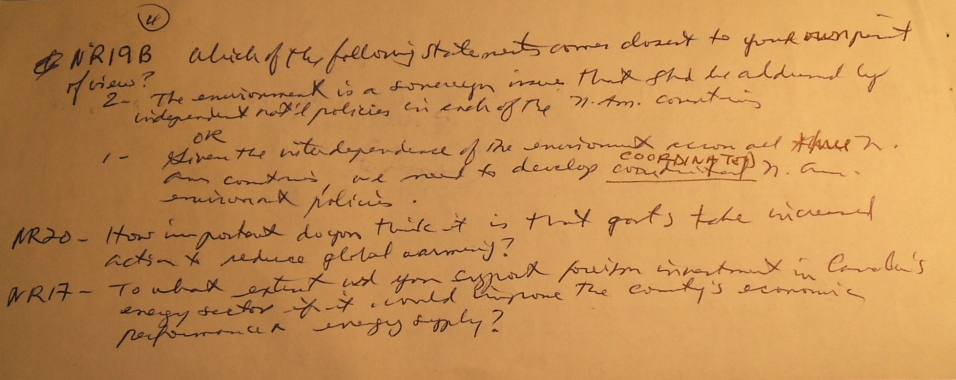 4
NR19B Which of the following statements comes closest to your own point
of view?
2- The environment is a sovereign issue that shd be addressed by
independent nat'l policies in each of the N. Am. countries
OR
1- Given the interdependence of the environment across all three N.
Am countries, we need to develop COORDINATED N. Am.
environment policies.
NR20- How important do you think it is that govts take increased
action to reduce global warming?
NR17- To what extent wd you support foreign investment in Canada's
energy sector if it would improve the county's economic
performance & energy supply?